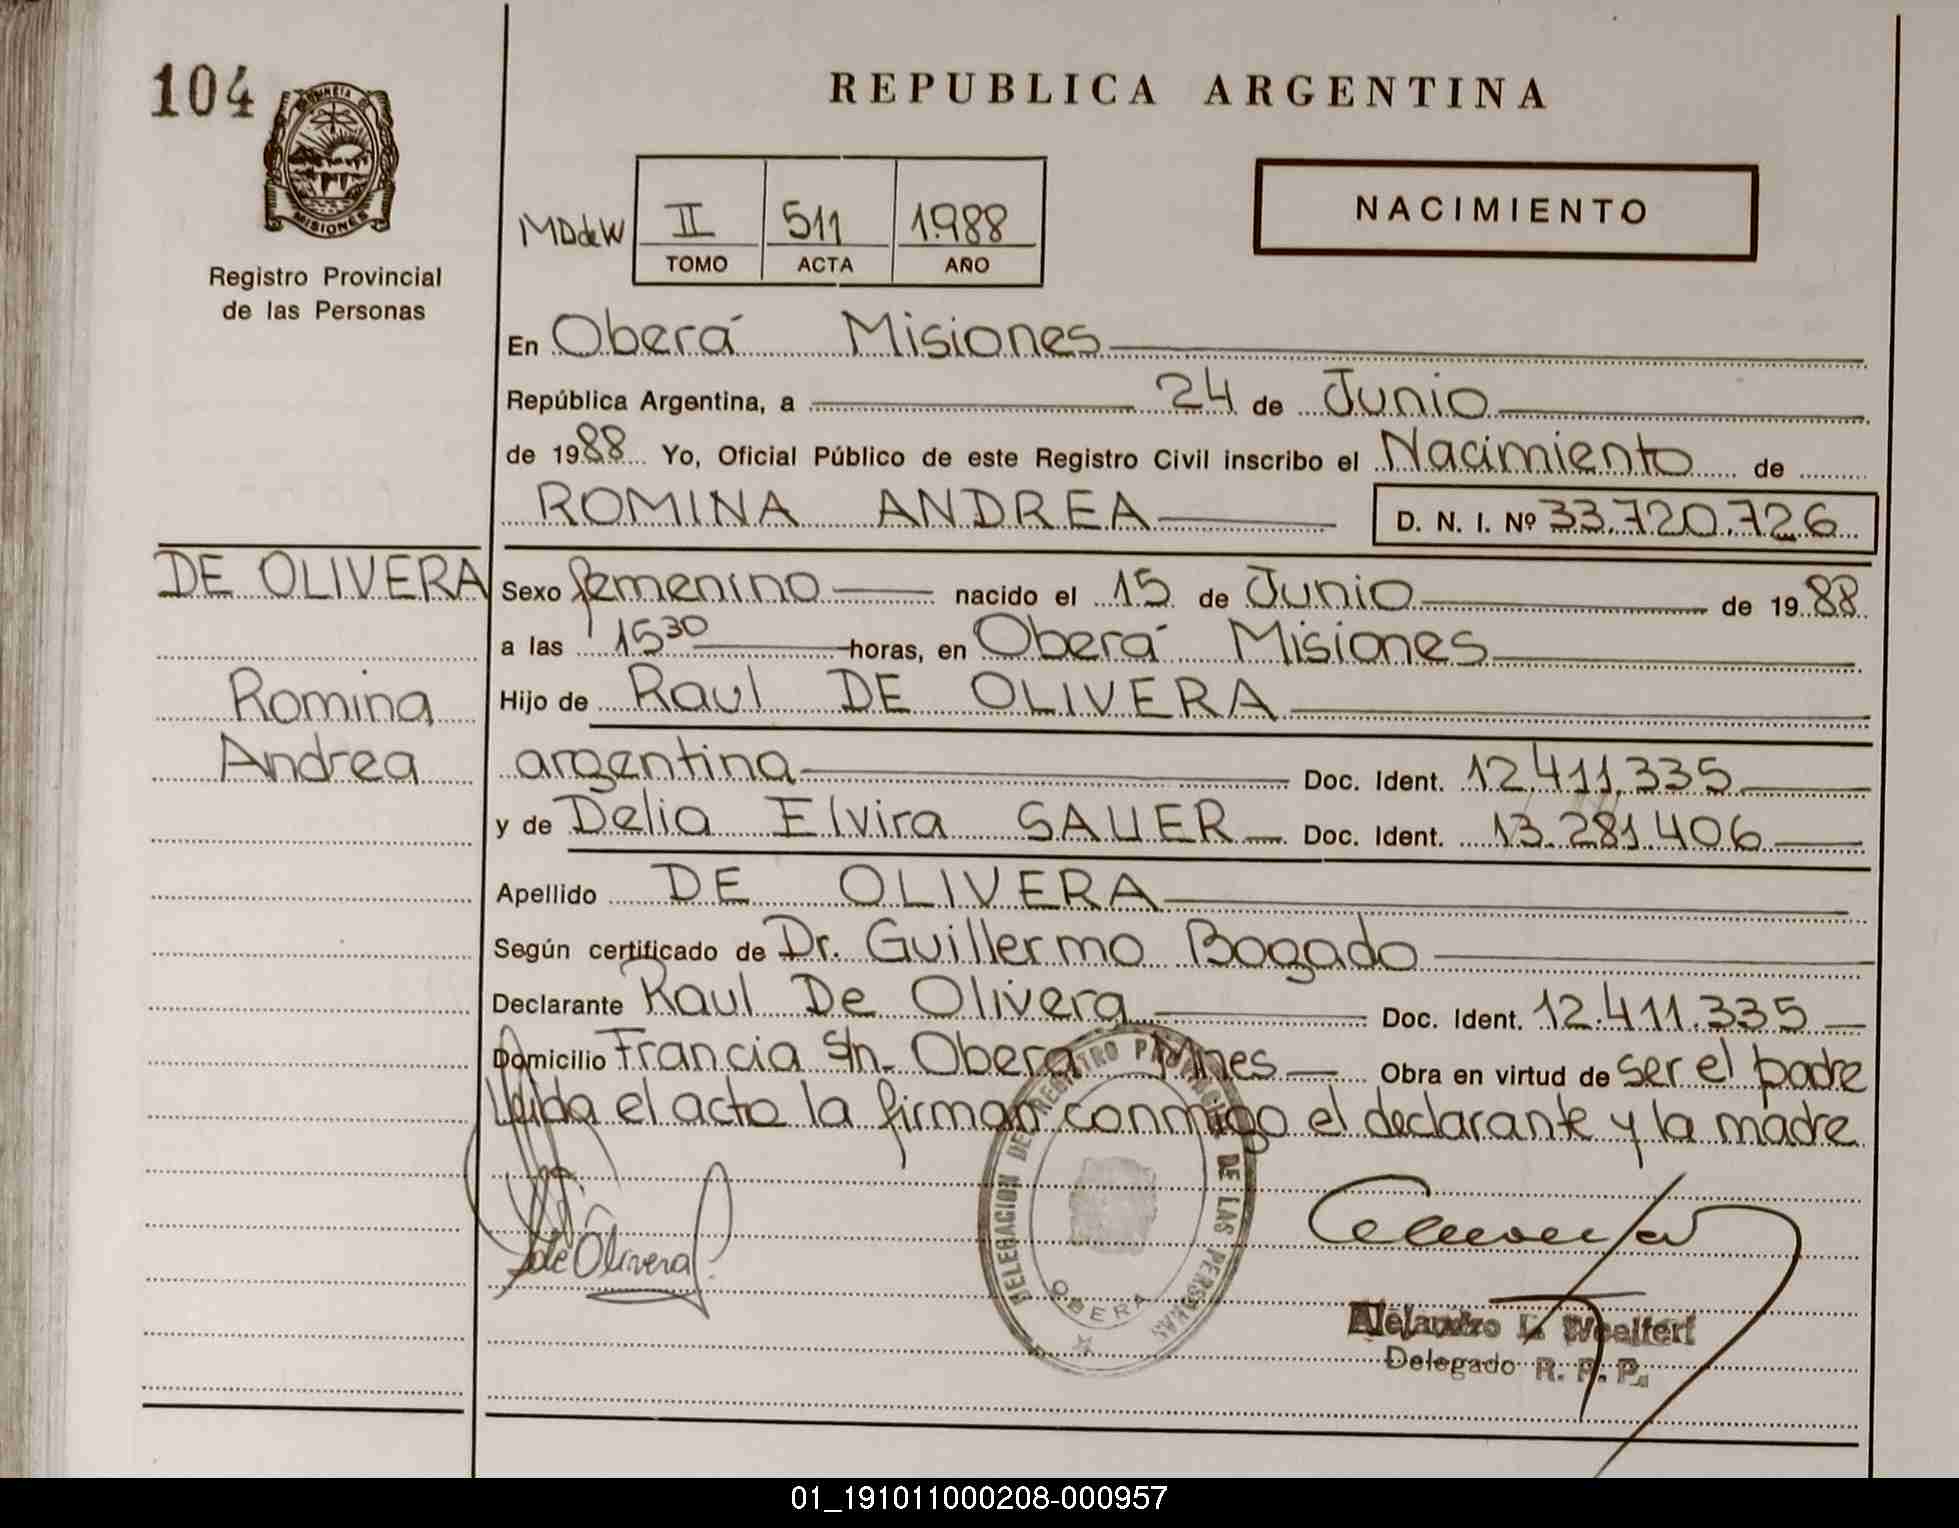 104
REPUBLICA ARGENTINA
MISIONES
Registro Provincial
de las Personas
MDdeW II 511 1.988
TOMO ACTA AÑO
NACIMIENTO
En Oberá Misiones
República Argentina, a 24 de Junio
de 1988 Yo, Oficial Público de este Registro Civil inscribo el Nacimiento de
ROMINA ANDREA D. N. I. Nº 33.720.726
DE OLIVERA
Romina
Andrea
Sexo femenino nacido el 15 de Junio de 1988
a las 15 30 horas, en Oberá Misiones
Hijo de Raul DE OLIVERA
argentina Doc. Ident. 12.411.335
y de Delia Elvira SAUER Doc. Ident. 13.281.406
Apellido DE OLIVERA
Según certificado de Dr. Guillermo Bogado
Declarante Raul De Olivera Doc. Ident. 12.411.335
Domicilio Francia S/n. Obera Mnes Obra en virtud de ser el padre
Leida el acta la firman conmigo el declarante y la madre
de Olivera
DELEGACION DEL REGISTRO PROVINCIAL DE LAS PERSONAS
OBERA
Alejandro
Delegado R. P. P.
01_191011000208-000957